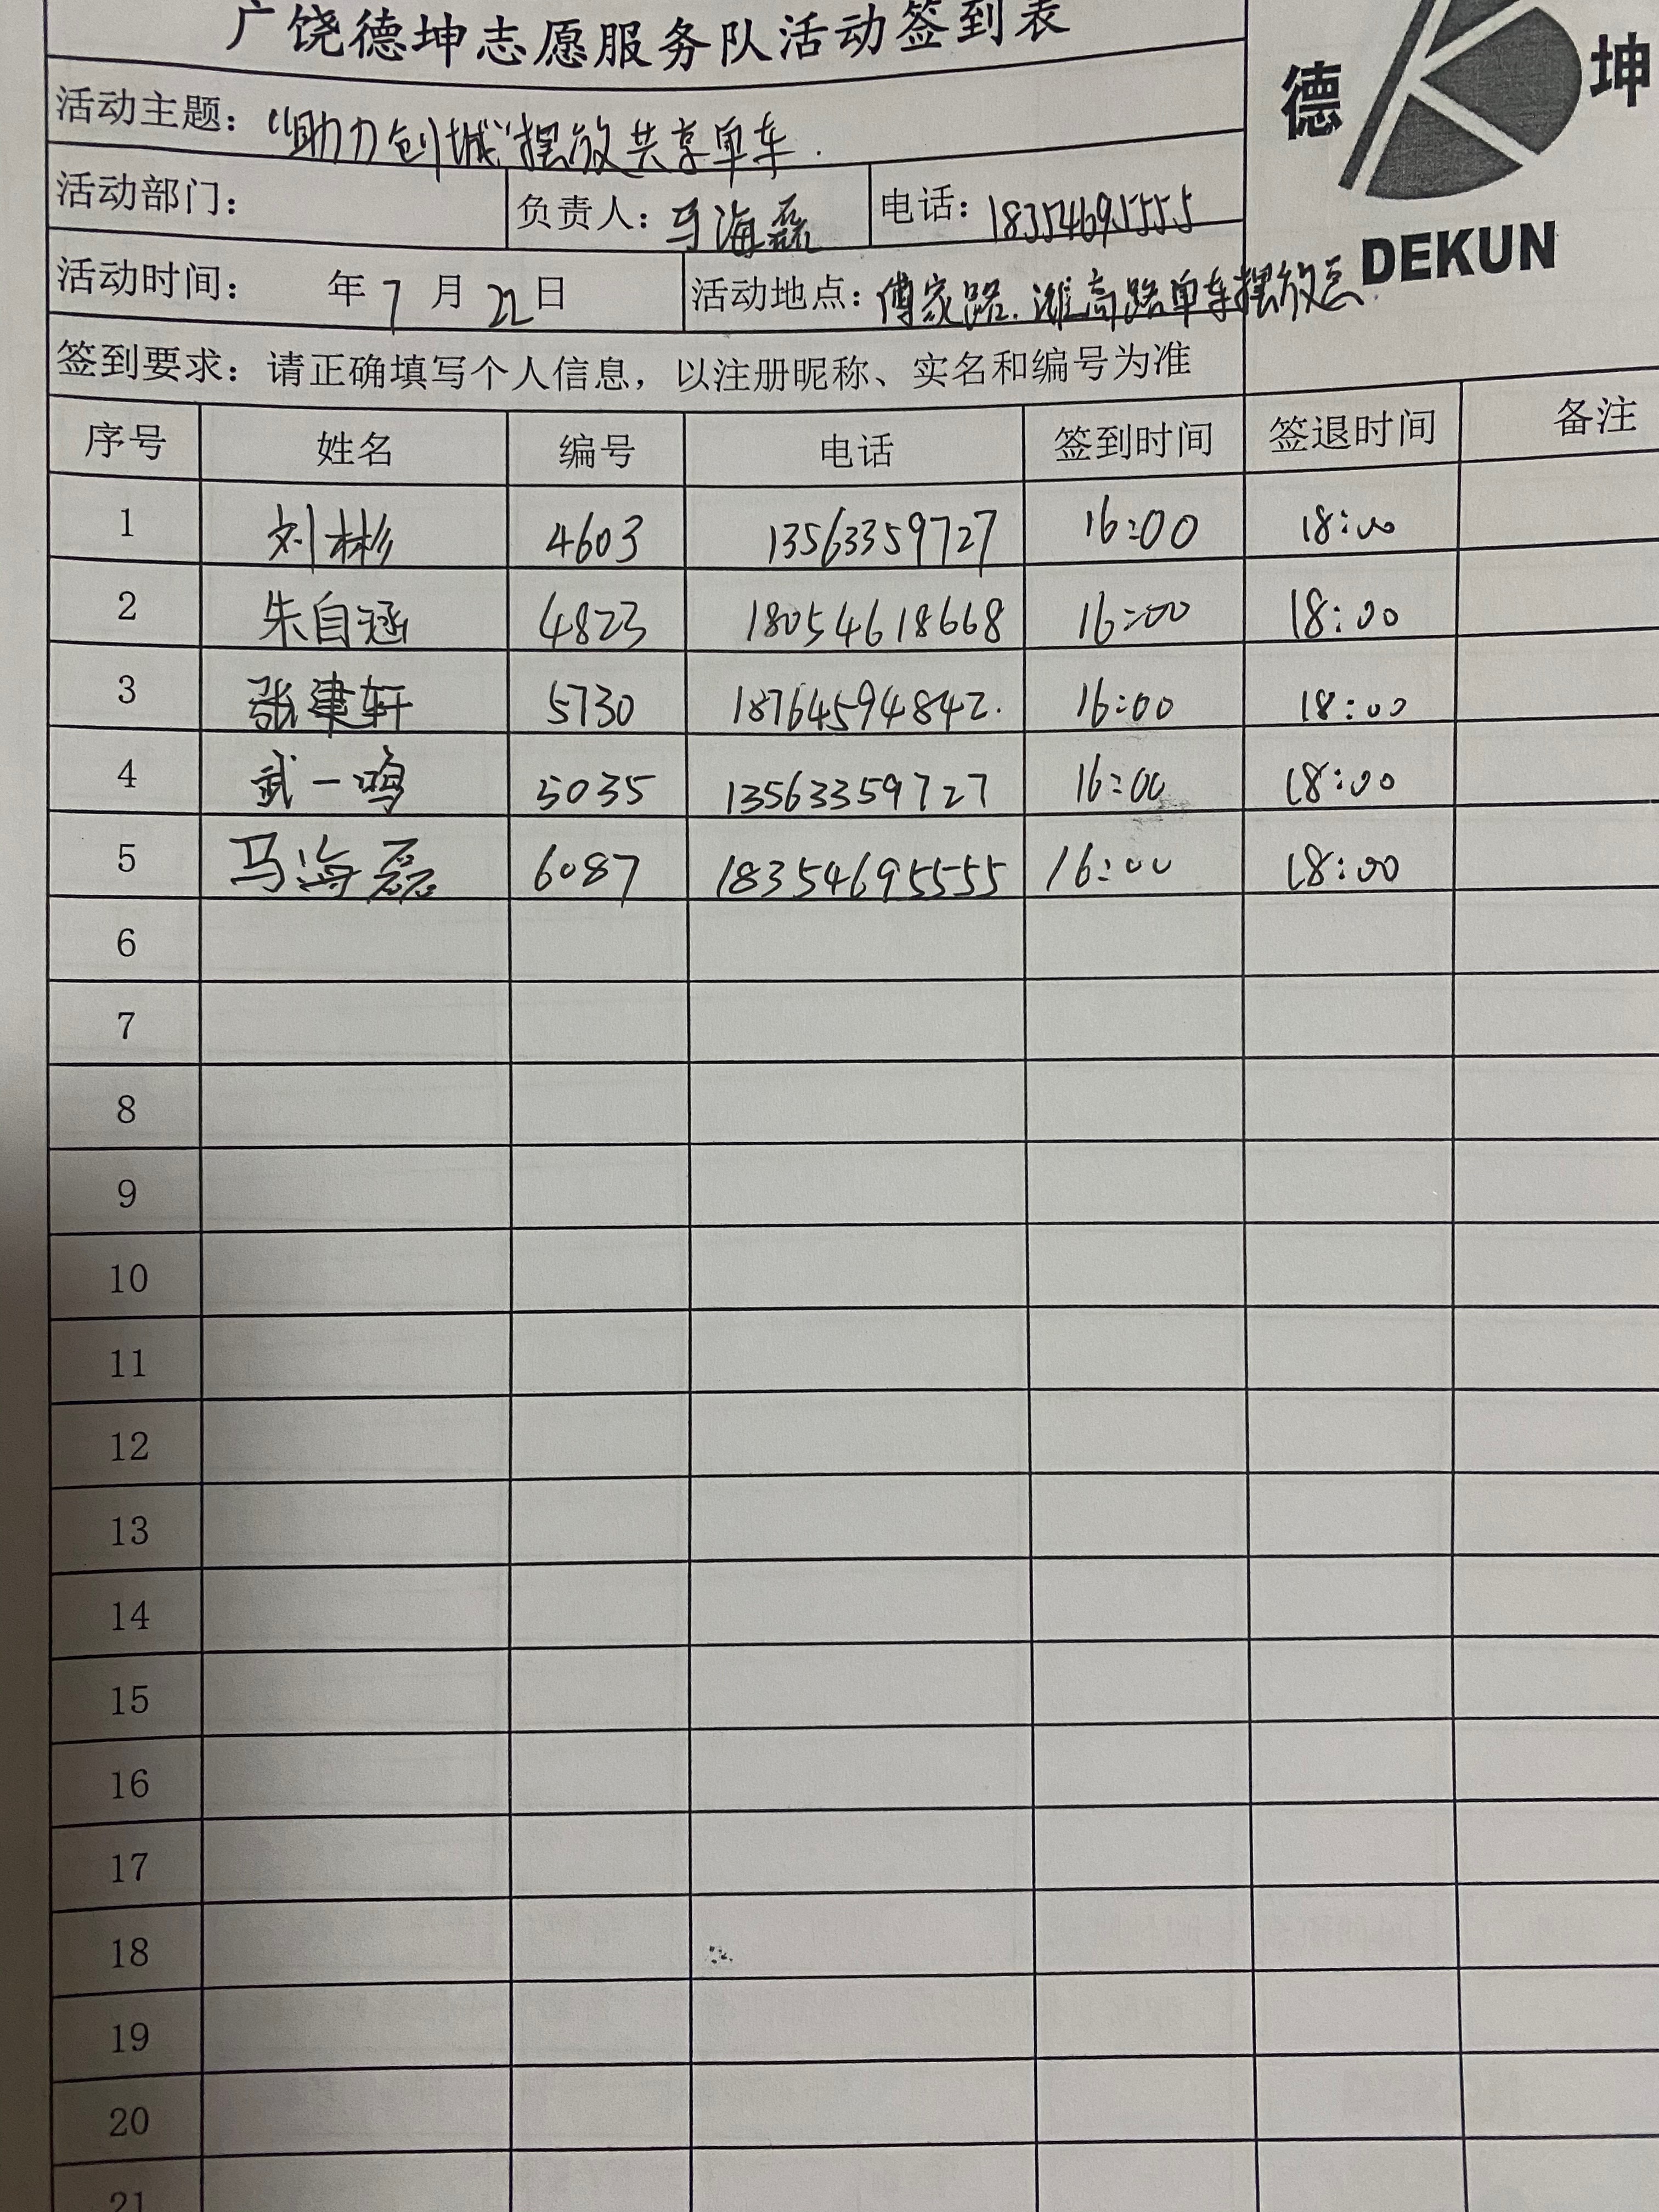 广饶德坤志愿服务队活动签到表
德 坤
DEKUN
活动主题：“助力创城”摆放共享单车.
活动部门： 负责人：马海磊 电话：18354695555
活动时间： 年7月22日 活动地点：傅家路.潍高路单车摆放点
签到要求：请正确填写个人信息，以注册昵称、实名和编号为准
序号 姓名 编号 电话 签到时间 签退时间 备注
1 刘彬 4603 13563359727 16:00 18:00
2 朱自涵 4823 18054618668 16:00 18:00
3 张建轩 5730 18764594842. 16:00 18:00
4 武一鸣 5035 13563359727 16:00 18:00
5 马海磊 6087 18354695555 16:00 18:00
6
7
8
9
10
11
12
13
14
15
16
17
18
19
20
21